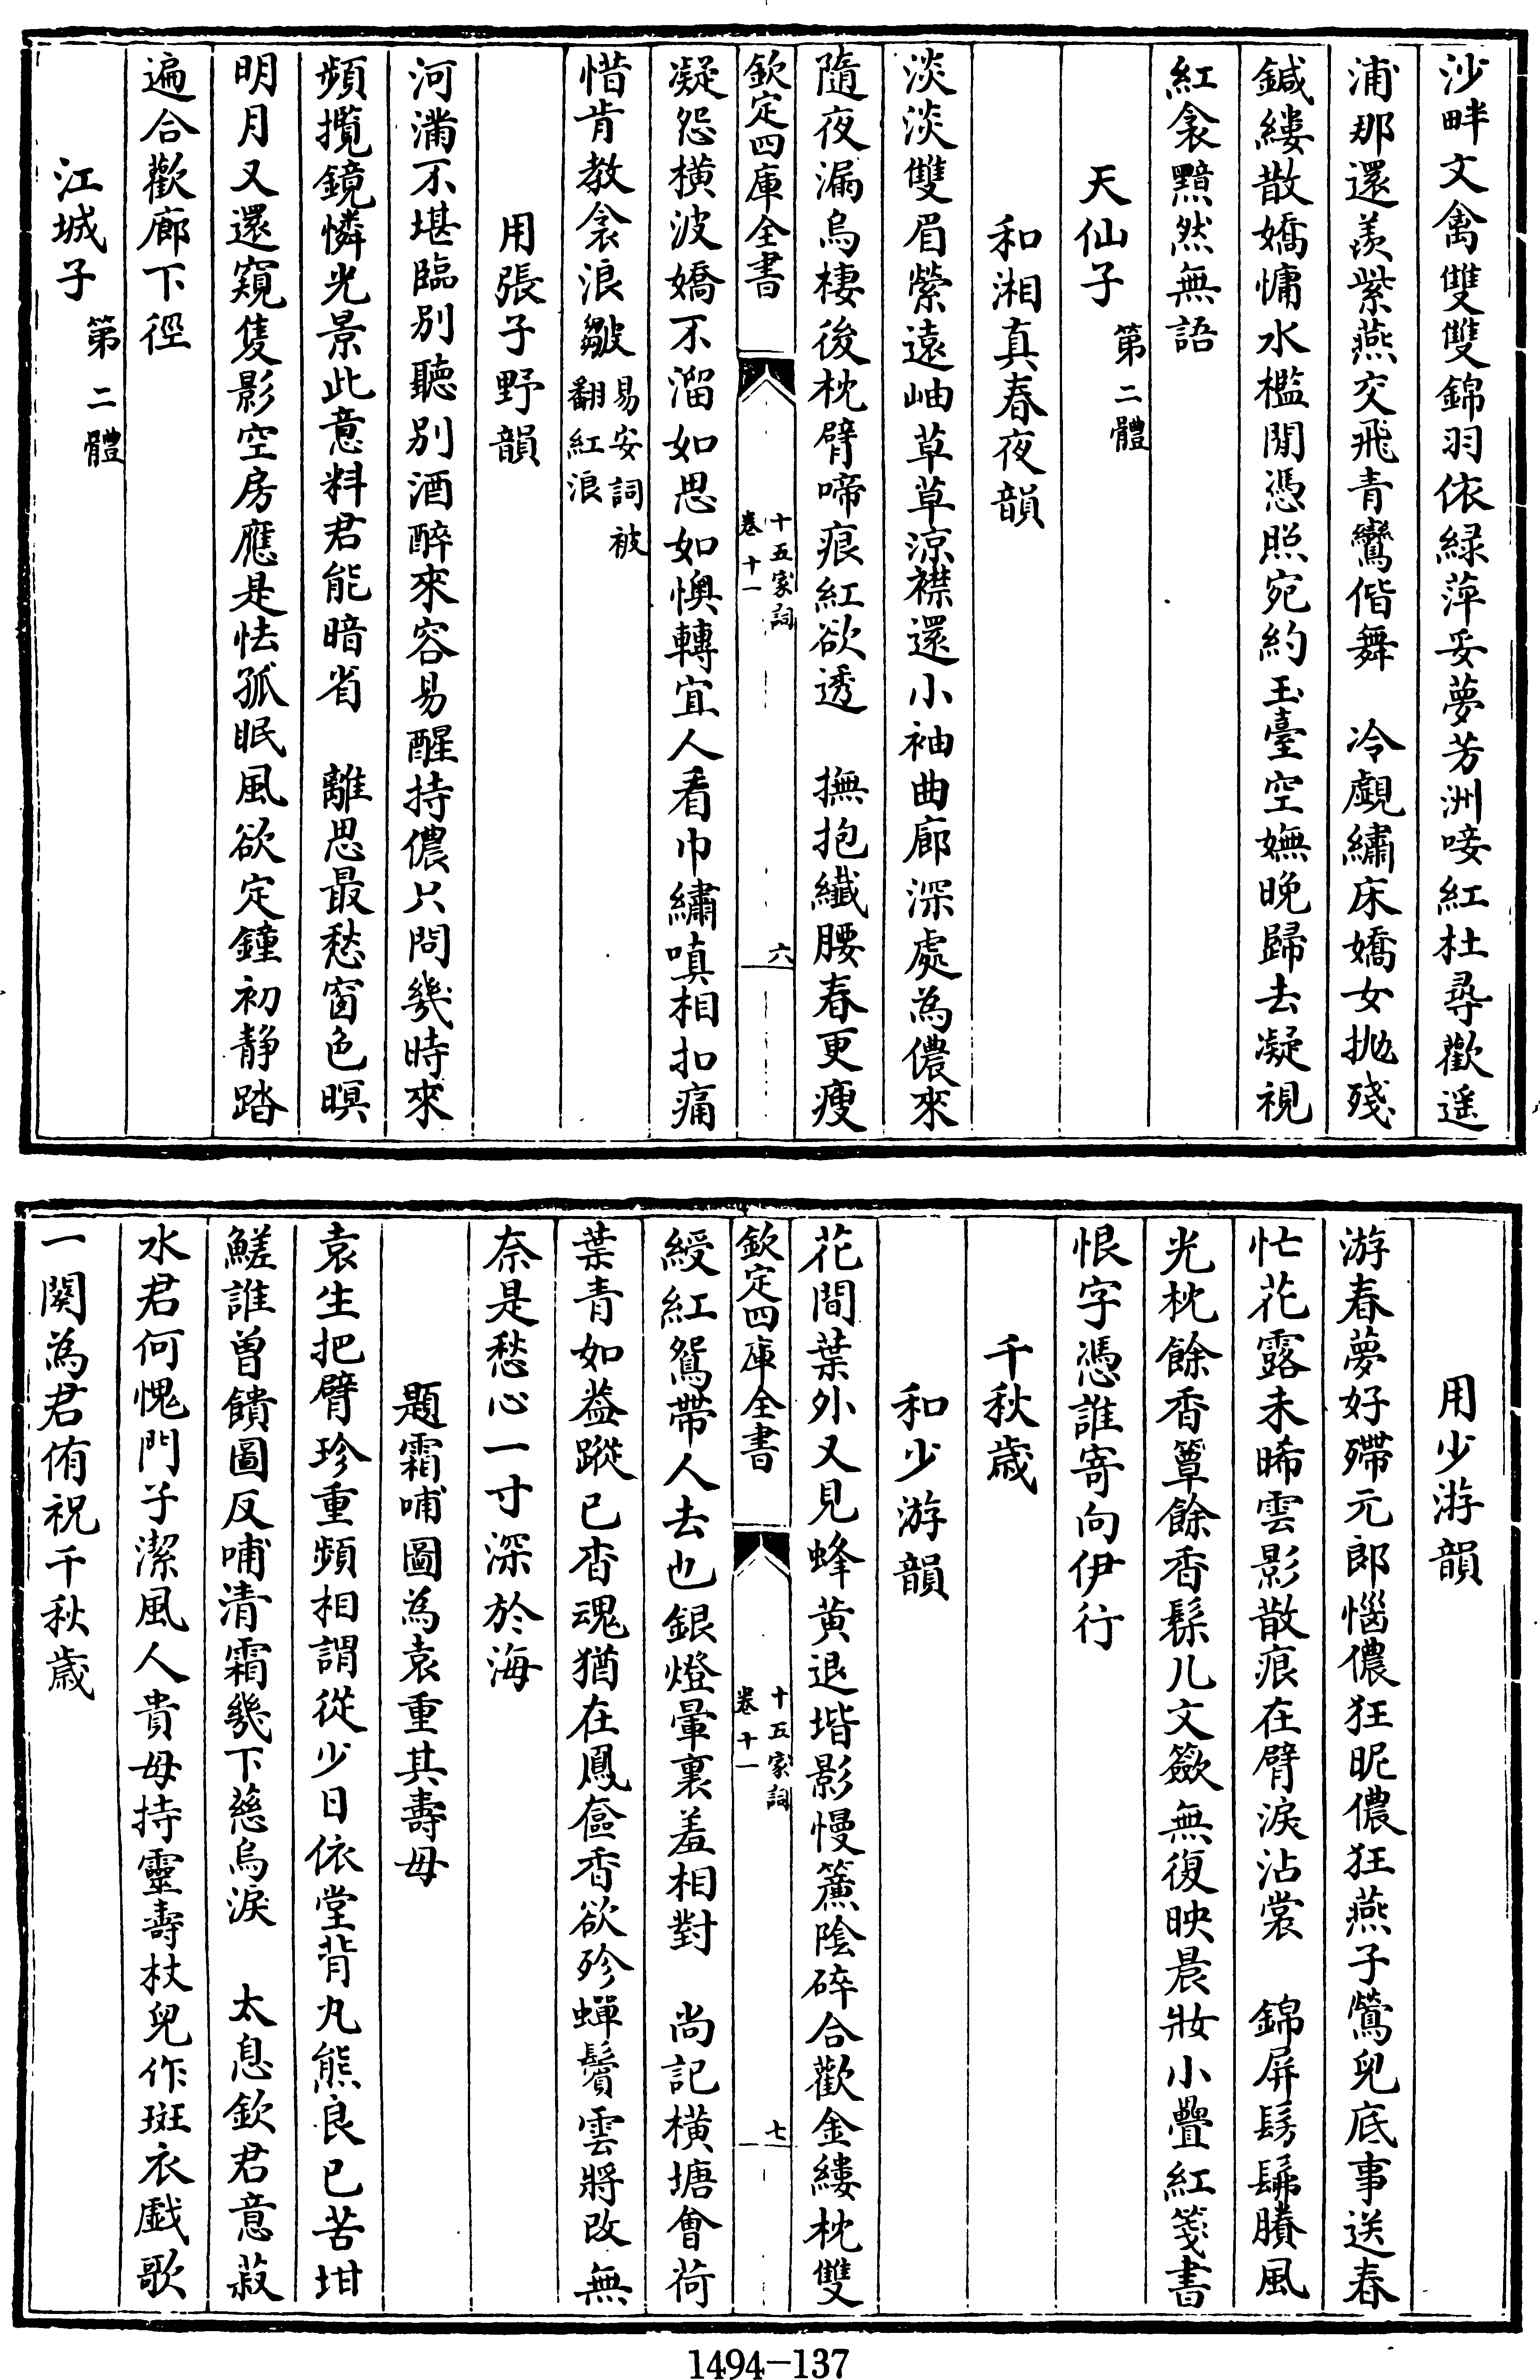 沙畔文禽雙雙錦羽依緑萍妥夢芳洲唼紅杜尋歡遥
浦那還羨紫燕交飛青鸞偕舞　冷覷繡床嬌女抛殘
鍼縷散嬌慵水檻閒憑照宛約玉臺空嫵晚歸去凝視
紅衾黯然無語
天仙子　第二體
和湘真春夜韻
淡淡雙眉縈遠岫草草涼襟還小袖曲廊深處為儂來
隨夜漏烏棲後枕臂啼痕紅欲透　撫抱纖腰春更瘦
欽定四庫全書　十五家詞　卷十一　六
凝怨横波嬌不溜如思如懊轉宜人看巾繡嗔相扣痛
惜肯教衾浪皺　易安詞被翻紅浪
用張子野韻
河滿不堪臨别聽别酒醉來容易醒持儂只問幾時來
頻攬鏡憐光景此意料君能暗省　離思最愁窗色暝
明月又還窺隻影空房應是怯孤眠風欲定鐘初静踏
遍合歡廊下徑
江城子　第二體
用少游韻
游春夢好殢元郎惱儂狂昵儂狂燕子鶯兒底事送春
忙花露未晞雲影散痕在臂淚沾裳　錦屏髣髴賸風
光枕餘香簟餘香髹几文奩無復映晨妝小疊紅箋書
恨字憑誰寄向伊行
千秋歲
和少游韻
花間葉外又見蜂黄退堦影慢簾陰碎合歡金縷枕雙
欽定四庫全書　十五家詞　卷十一　七
綬紅鴛帶人去也銀燈暈裏羞相對　尚記横塘會荷
葉青如葢蹤已杳魂猶在鳳奩香欲殄蟬鬢雲將改無
奈是愁心一寸深於海
題霜哺圖為袁重其壽母
袁生把臂珍重頻相謂從少日依堂背丸熊良已苦坩
鮓誰曾饋圖反哺清霜幾下慈烏淚　太息欽君意菽
水君何愧門子潔風人貴母持靈壽杖兒作斑衣戲歌
一闋為君侑祝千秋歲
1494-137